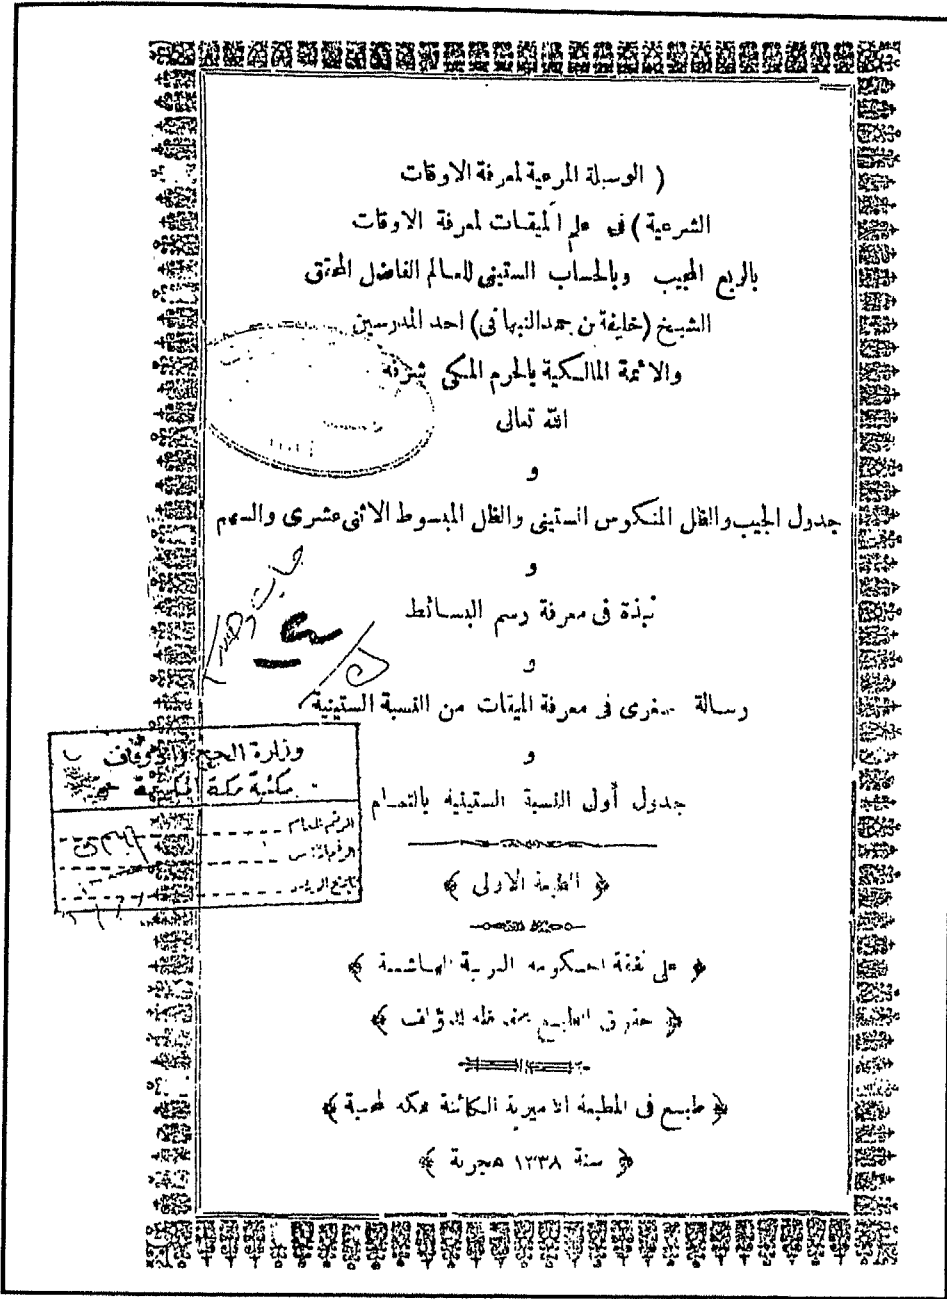 ( الوسيلة المرعية لمعرفة الاوقات
الشرعية ) في علم الميقات لمعرفة الاوقات
بالربع المجيب وبالحساب الستيني للعالم الفاضل المحقق
الشيخ (خليفة بن حمد النبهاني) احد المدرسين
والائمة المالكية بالحرم المكي شرفه
الله تعالى
و
جدول الجيب والظل المنكوس الستيني والظل المبسوط الاثني عشرى والسهم
و
نبذة في معرفة رسم البسائط
و
رسالة صغرى في معرفة الميقات من النسبة الستينية
و
جدول أول النسبة الستينية بالتمام
﴿ الطبعة الاولى ﴾
﴿ على نفقة الحكومة العربية الهاشمية ﴾
﴿ حقوق الطبع محفوظه للمؤلف ﴾
﴿ طبع في المطبعة الاميرية الكائنة بمكه المحمية ﴾
﴿ سنة ١٣٣٨ هجرية ﴾
وزارة الحج والأوقاف
مكتبة مكة المكرمة
الرقم العام
تاريخ الورود